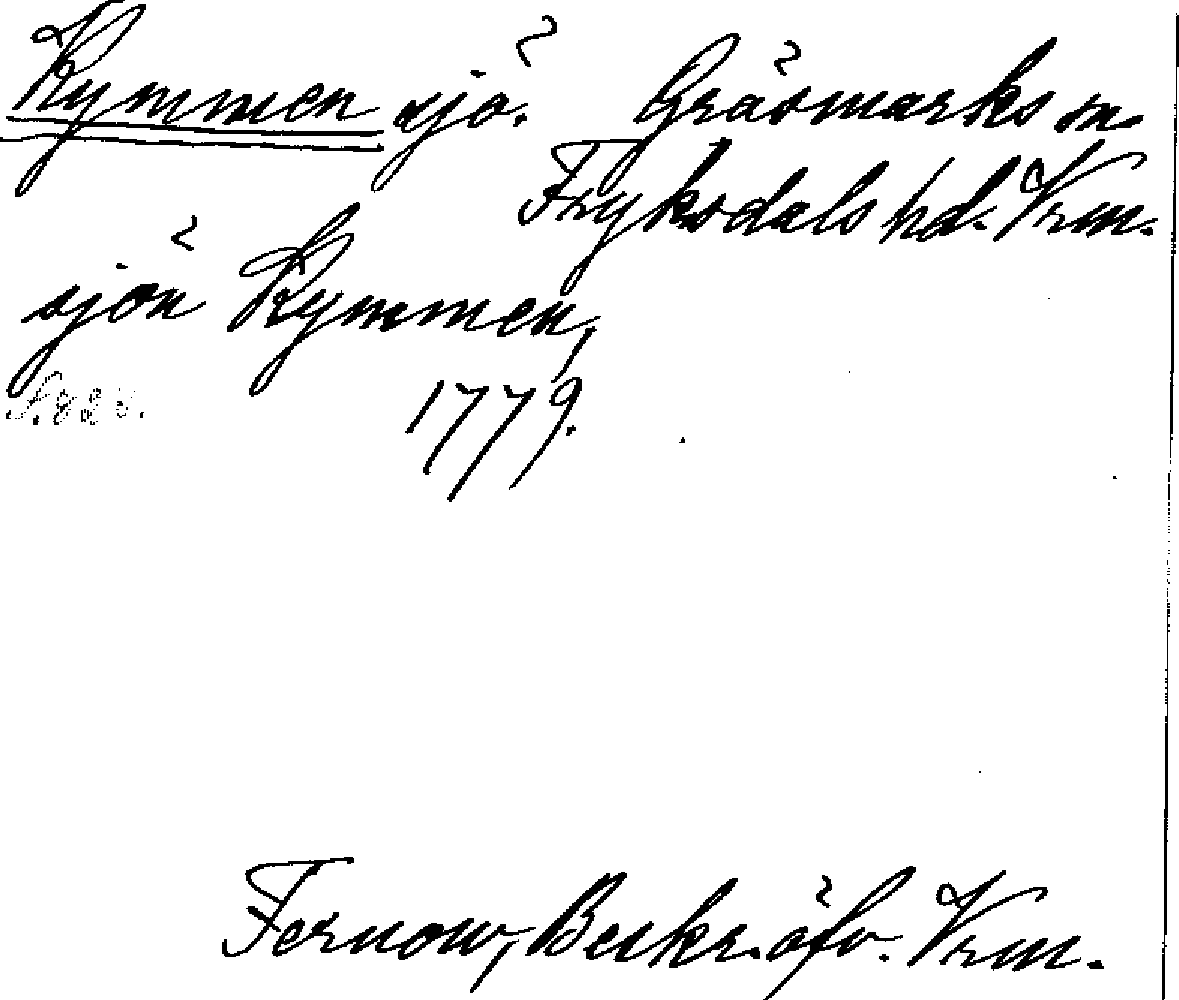 Kymmen sjö. Gräsmarks sn.
Fryksdals hd. Vrm.
sjön Kymmen,
1779.
Fernow, Beskr. öfv. Vrm.